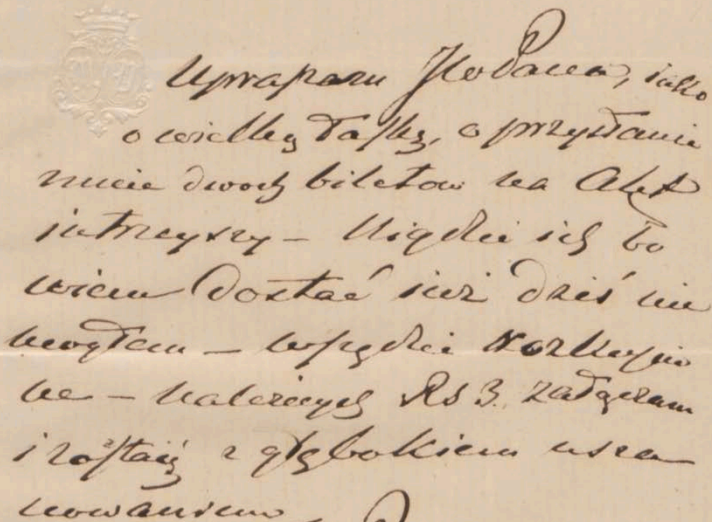 Upraszam JWo Pana, jako
o wielką łaskę, o przysłanie
mnie dwóch biletów na Akt
jutrzejszy – Nigdzie ich bo
wiem dostać już dziś nie
mogłem – wszędzie rozkupio
ne – należnych Rs 3. załączam
i zostaję z głębokiem usza
nowaniem